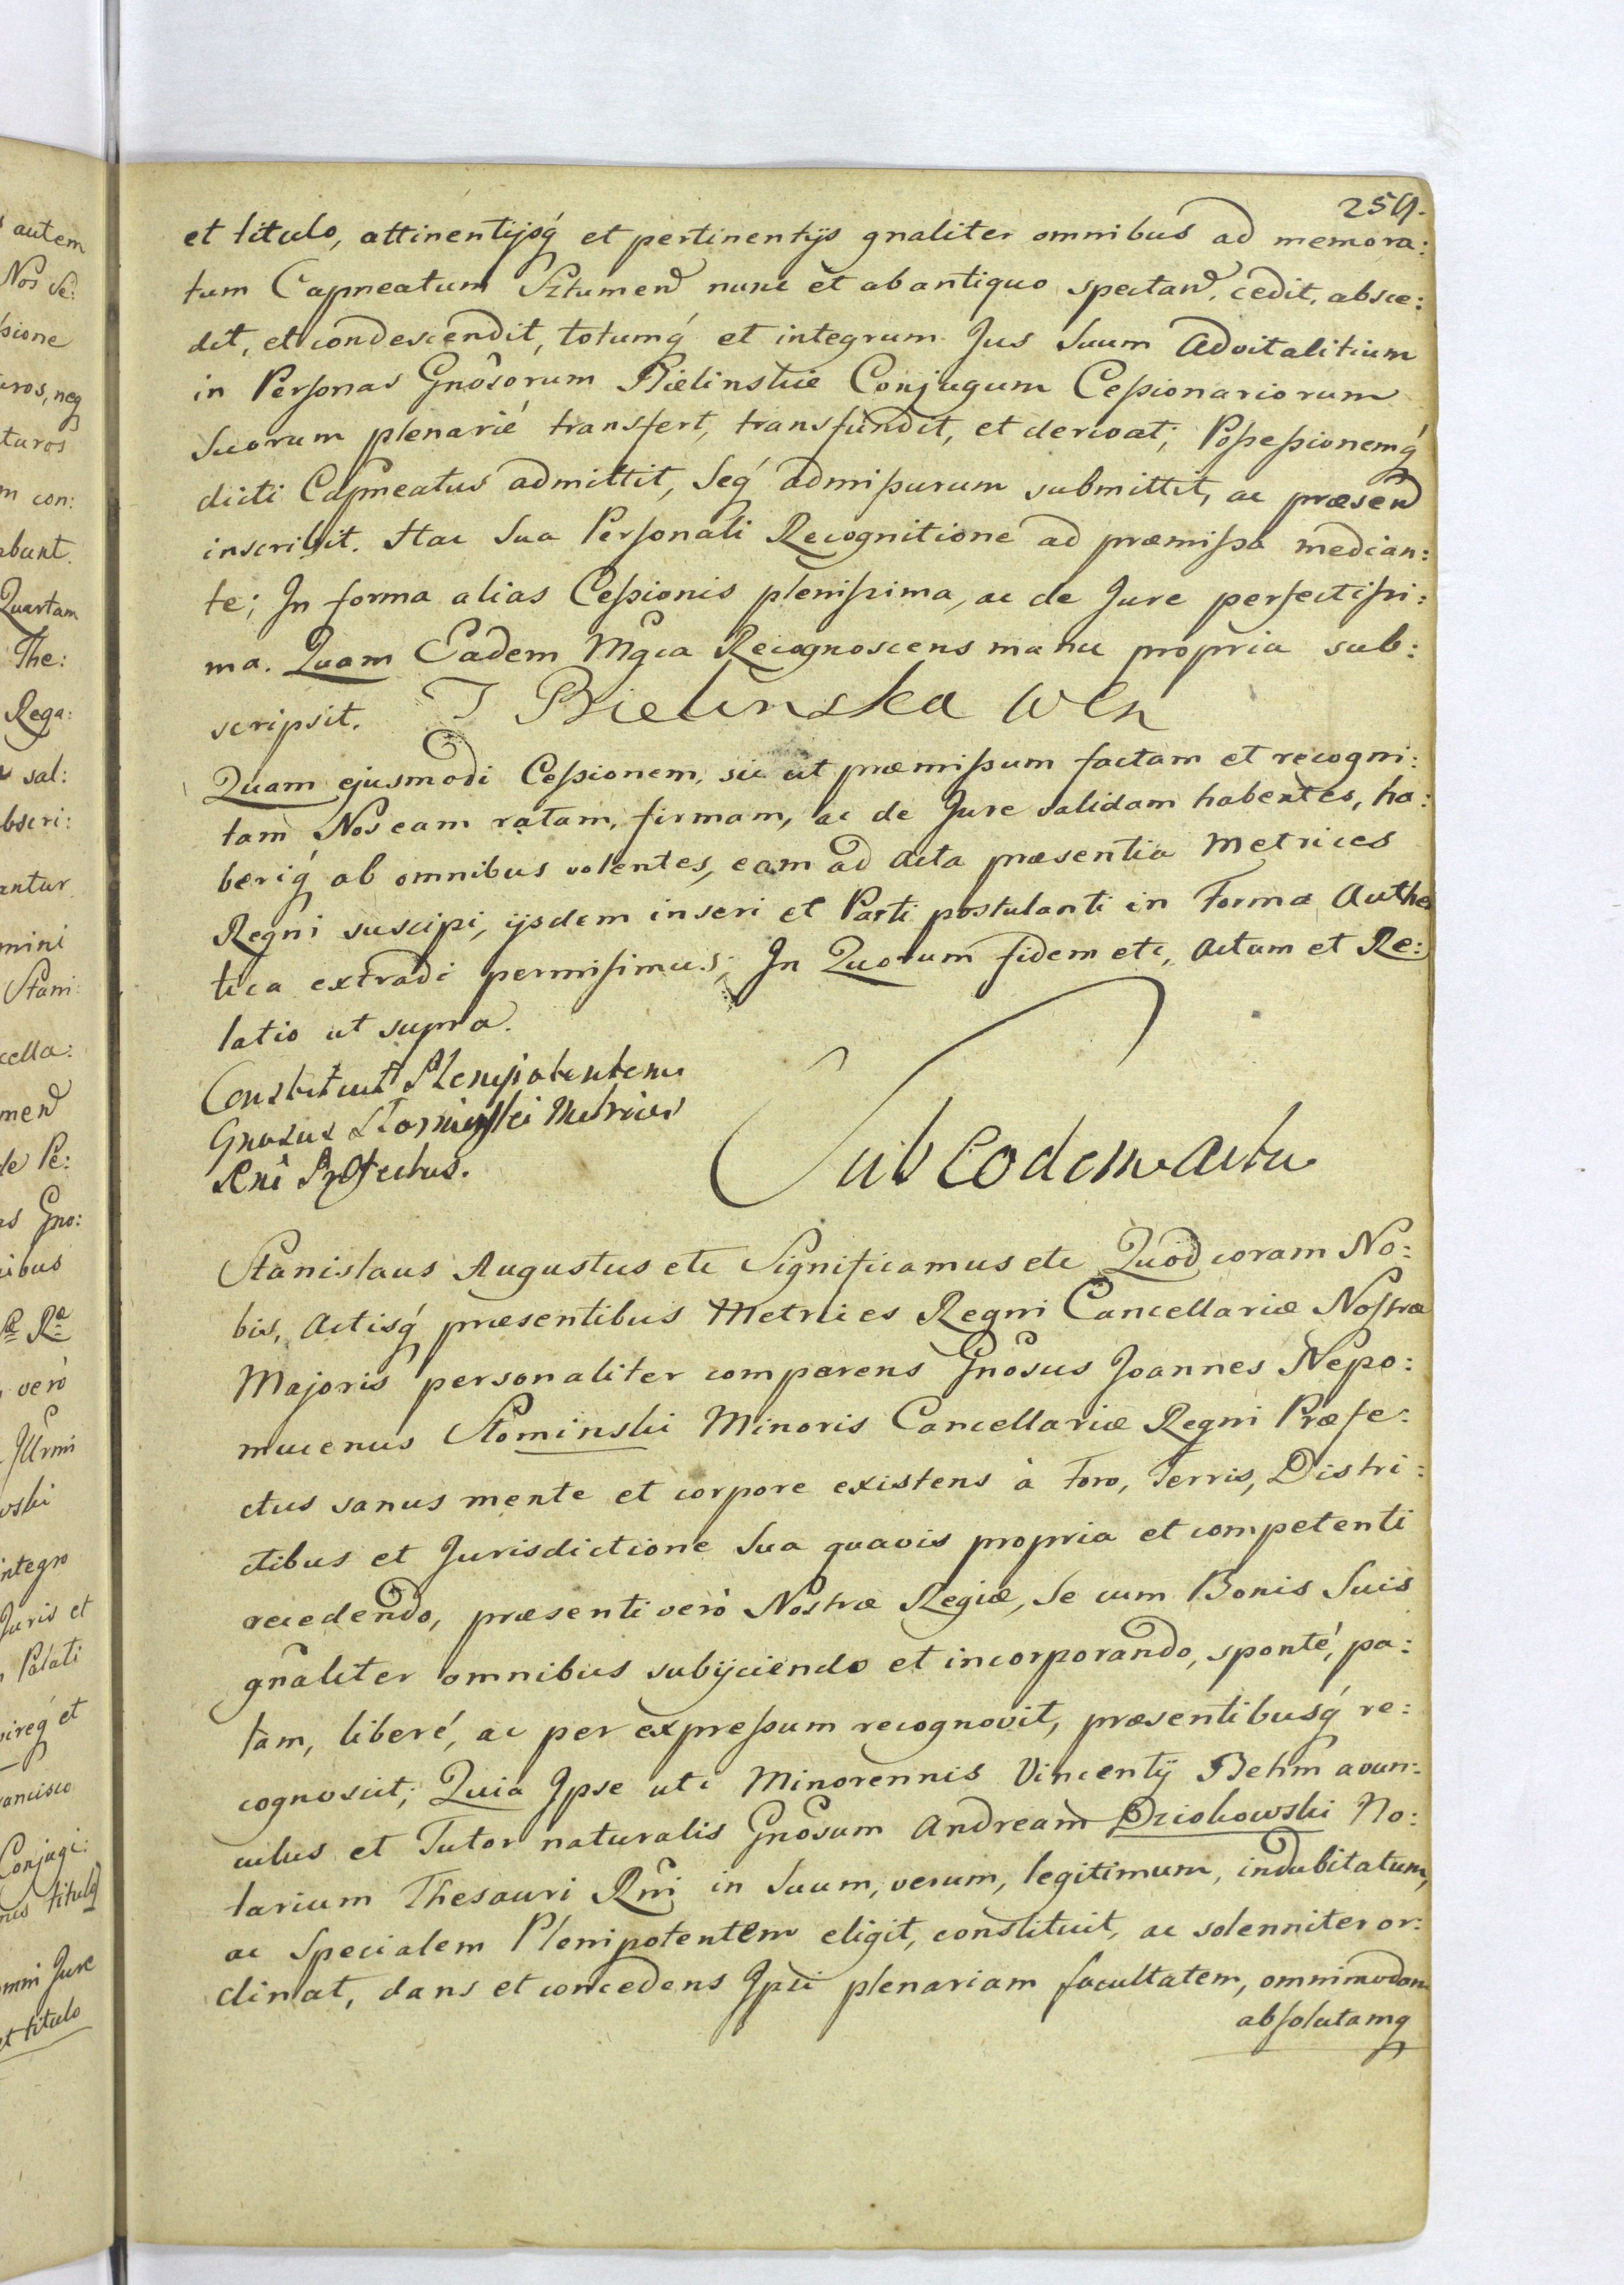 259.
et titulo, attinentijsq́ et pertinentijs gnaliter omnibus ad memora:
tum Capneatum Sztumen̄ nunc et ab antiquo spectan̄. cedit, absce:
dit, et condescendit, totumq́ et integrum Jus Suum Advitalitium
in Personas Gnôsorum Bielinskie Conjugum Cessionariorum
Suorum plenarié transfert, transfundit, et derivat; Possessionemq́
dicti Capneatus admittit, Seq́ admissurum submittit, ac præsen̄
inscribit. Hac Sua Personali Recognitione ad præmissa median:
te; In forma alias Cessionis plenissima, ac de Jure perfectissi:
ma. Quam Eadem Mgca Recognoscens manu propria sub:
scripsit. T Bielinska
Quam ejusmodi Cessionem, sic ut præmissum factam et recogni:
tam Nos eam ratam, firmam, ac de Jure validam habentes, ha:
beriq́ ab omnibus volentes, eam ad Acta præsentia Metrices
Regni suscipi, ijsdem inseri et Parti postulanti in Forma Authe
tica extradi permisimus; In Quorum fidem etc, Actum et Re:
latio ut supra.
Constituit Plenipotentem
Gnosus Słominski Metrices
Rni Præfectus.
Sub Eodem Actu
Stanislaus Augustus etc Significamus etc Quod coram No:
bis, Actisq́ præsentibus Metrices Regni Cancellariæ Nostræ
Majoris personaliter comparens Gnôsus Joannes Nepo:
mucenus Słominski Minoris Cancellariæ Regni Præfe:
ctus sanus mente et corpore existens à Foro, Terris, Distri:
ctibus et Jurisdictione Sua quavis propria et competenti
recedendo, præsenti verò Nostræ Regiæ, Se cum Bonis Suis
gnâliter omnibus subijciendo et incorporando, sponté, pa:
lam, liberé, ac per expressum recognovit, præsentibusq́ re:
cognoscit; Quia Ipse uti Minorennis Vincentij Behm avun:
culus et Tutor naturalis Gnôsum Andream Dziokowski No:
tarium Thesauri Rni in Suum, verum, legitimum, indubitatum,
ac Specialem Plenipotentem eligit, constituit, ac solenniter or:
dinat, dans et concedens Ipsi plenariam facultatem, omnimodam
absolutamq